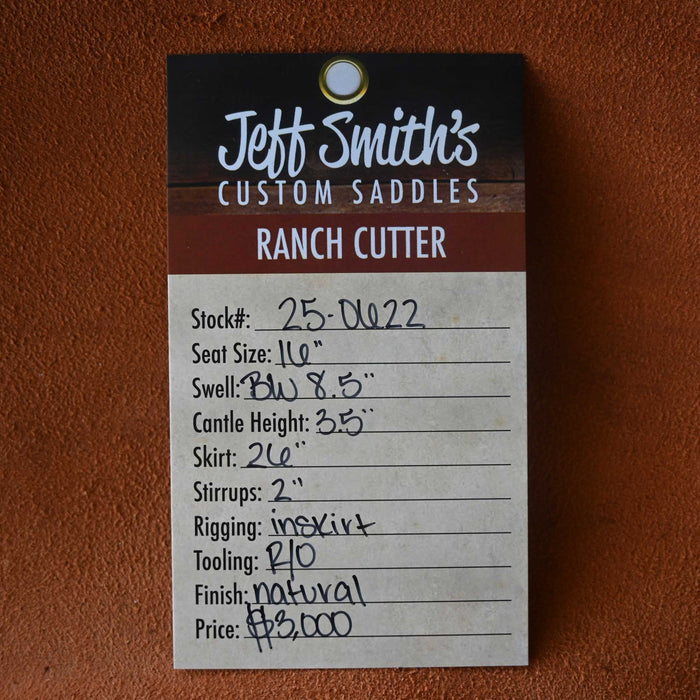 Jeff Smith's
CUSTOM SADDLES
RANCH CUTTER
Stock#: 25-0622
Seat Size: 16"
Swell: BW 8.5"
Cantle Height: 3.5"
Skirt: 26"
Stirrups: 2"
Rigging: inskirt
Tooling: R/O
Finish: natural
Price: $3,000